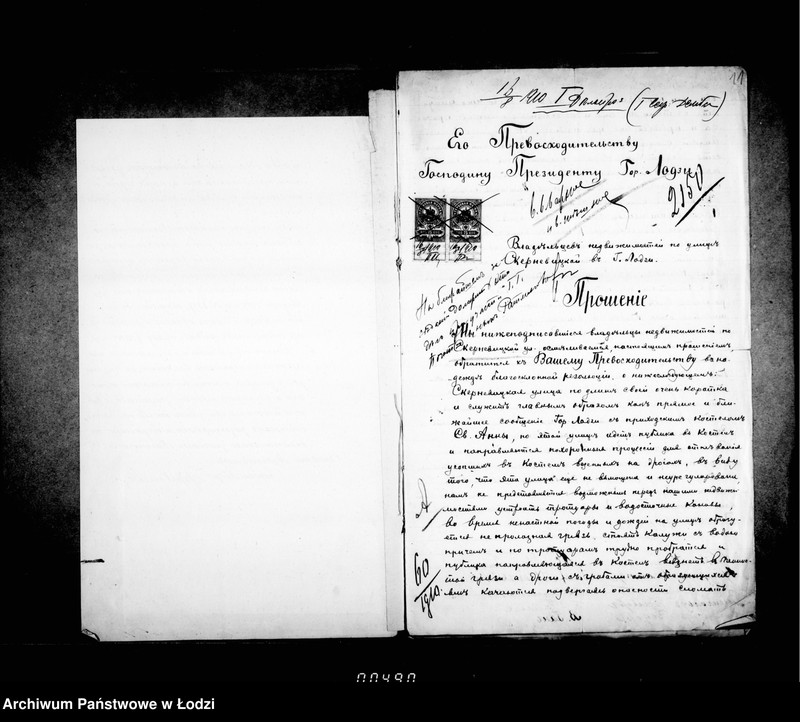 11
1910
Его Превосходительству
Господину Президенту Гор. Лодзи
2150
Владѣльцевъ недвижимостей по улицѣ
Скерневицкой въ Г. Лодзи.
Прошеніе
Мы нижеподписавшіеся владѣльцы недвижимостей по
Скерневицкой ул. осмѣливаемся, настоящимъ прошеніемъ
обратиться къ Вашему Превосходительству въ на-
деждѣ благосклонной резолюціи о нижеслѣдующемъ:
Скерневицкая улица по длинѣ своей очень коротка
и служитъ главнымъ образомъ какъ прямое и бли-
жайшее сообщеніе Гор. Лодзи съ приходскимъ костеломъ
Св. Анны, по этой улицѣ идетъ публика въ Костелъ
и направляются похоронныя процессіи для отпѣванія
усопшихъ въ Костелъ на дрогахъ, въ виду
того, что эта улица еще не вымощена и неурегулирована
намъ не представляется возможнымъ передъ нашими недвижи-
мостями устроить тротуары и водосточные канавы,
во время ненастной погоды и дождей на улицѣ образу-
ется непролазная грязь, стоятъ калужи съ водою
причемъ и по тротуарамъ трудно пробраться и
публика направляющаяся въ Костелъ вязнетъ въ
грязи а дроги съ гробами отъ образующихся
ямъ качаются подвергаясь опасности сломать
А
60
1910
00490
Archiwum Państwowe w Łodzi